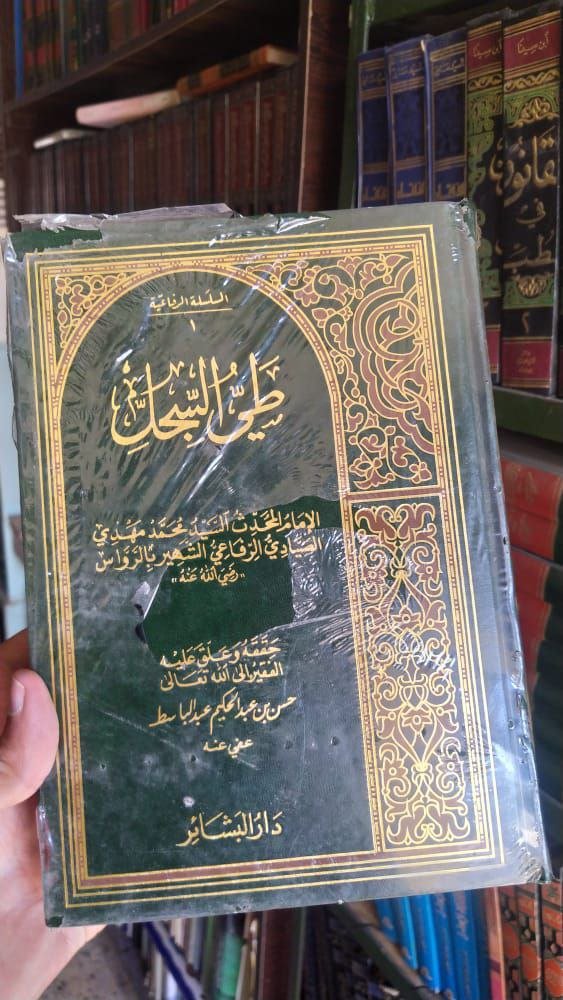 السلسلة الرفاعية
١
طَيُّ السِّجِلِّ
الإمام المحدث السيد محمد مهدي
الصيادي الرفاعي الشهير بالرواس
"رضي الله عنه"
حققه وعلق عليه
الفقير إلى الله تعالى
حسن بن عبد الحكيم عبد الباسط
عفي عنه
دار البشائر
ابن سينا
ابن سينا
القانون
في
الطب
٢